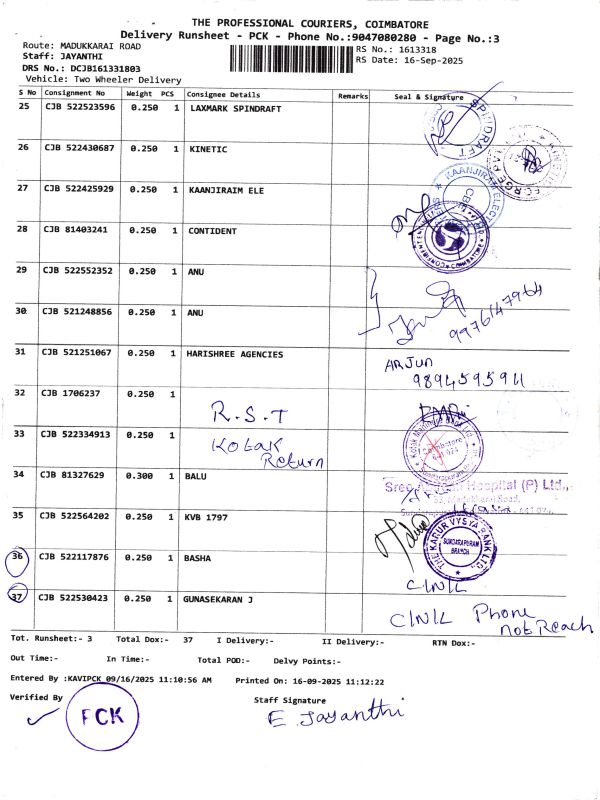 THE PROFESSIONAL COURIERS, COIMBATORE
Delivery Runsheet - PCK - Phone No.:9047080280 - Page No.:3
Route: MADUKKARAI ROAD RS No.: 1613318
Staff: JAYANTHI RS Date: 16-Sep-2025
DRS No.: DCJB161331803
Vehicle: Two Wheeler Delivery
S No Consignment No Weight PCS Consignee Details Remarks Seal & Signature
25 CJB 522523596 0.250 1 LAXMARK SPINDRAFT
26 CJB 522430687 0.250 1 KINETIC
27 CJB 522425929 0.250 1 KAANJIRAIM ELE
28 CJB 81403241 0.250 1 CONTIDENT
29 CJB 522552352 0.250 1 ANU
30 CJB 521248856 0.250 1 ANU
9976147964
31 CJB 521251067 0.250 1 HARISHREE AGENCIES
ARJUN
9894595911
32 CJB 1706237 0.250 1
R.S.T
33 CJB 522334913 0.250 1
KOTAK
Return
34 CJB 81327629 0.300 1 BALU
Hospital (P) Ltd.,
35 CJB 522564202 0.250 1 KVB 1797
THE KARUR VYSYA BANK LTD.
SUNDARAPURAM
BRANCH
36 CJB 522117876 0.250 1 BASHA
C/N/L
37 CJB 522530423 0.250 1 GUNASEKARAN J
C/N/L Phone
not Reach
Tot. Runsheet:- 3 Total Dox:- 37 I Delivery:- II Delivery:- RTN Dox:-
Out Time:- In Time:- Total POD:- Delvy Points:-
Entered By :KAVIPCK 09/16/2025 11:10:56 AM Printed On: 16-09-2025 11:12:22
Verified By Staff Signature
PCK
E Jayanthi